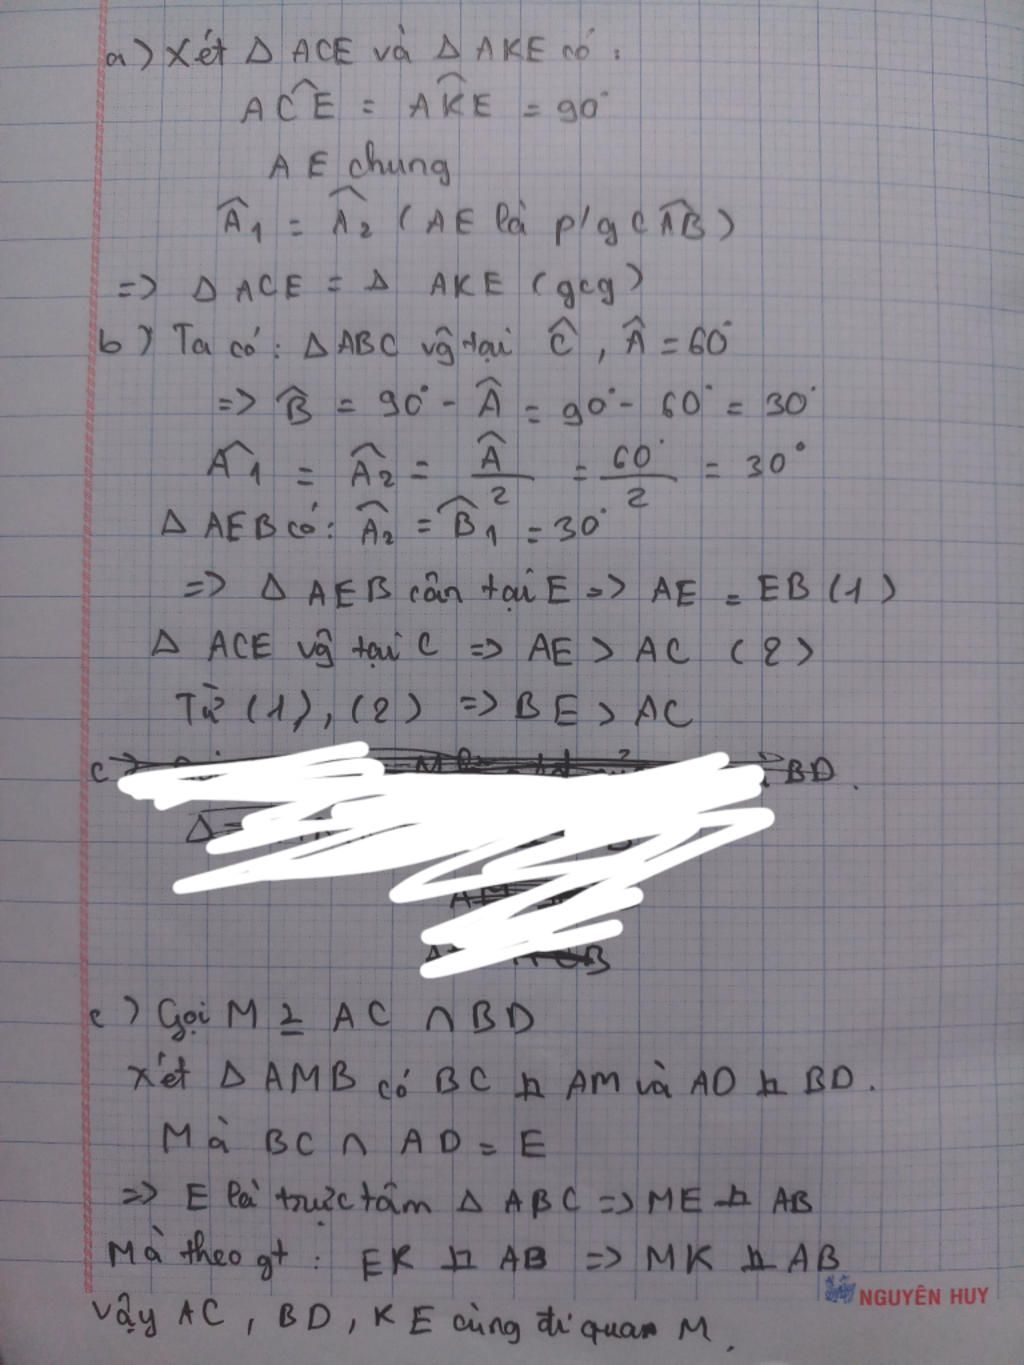 a) Xét Δ ACE và Δ AKE có:
AĈE = AK̂E = 90°
AE chung
Â1 = Â2 (AE là p/g CÂB)
=> Δ ACE = Δ AKE (gcg)
b) Ta có: Δ ABC vg tại Ĉ, Â = 60°
=> B̂ = 90° - Â = 90° - 60° = 30°
Â1 = Â2 = Â/2 = 60°/2 = 30°
Δ AEB có: Â2 = B̂1 = 30°
=> Δ AEB cân tại E => AE = EB (1)
Δ ACE vg tại C => AE > AC (2)
Từ (1), (2) => BE > AC
c) BD.
c) Gọi M = AC ∩ BD
Xét Δ AMB có BC ⊥ AM và AD ⊥ BD.
Mà BC ∩ AD = E
=> E là trực tâm Δ ABC => ME ⊥ AB
Mà theo gt: EK ⊥ AB => MK ⊥ AB
NGUYÊN HUY
Vậy AC, BD, KE cùng đi qua M.